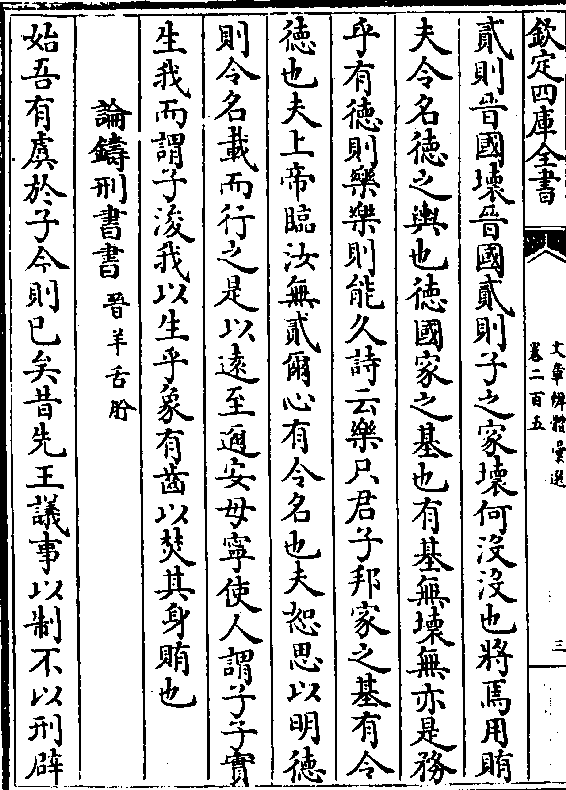 欽定四庫全書
文章辨體彙選
卷二百五
三
貳則晉國壞晉國貳則子之家壞何沒沒也將焉用賄
夫令名德之輿也德國家之基也有基無壞無亦是務
乎有德則樂樂則能久詩云樂只君子邦家之基有令
德也夫上帝臨汝無貳爾心有令名也夫恕思以明德
則令名載而行之是以遠至邇安毋寧使人謂子子實
生我而謂子浚我以生乎象有齒以焚其身賄也
論鑄刑書書 晉羊舌肸
始吾有虞於子今則已矣昔先王議事以制不以刑辟